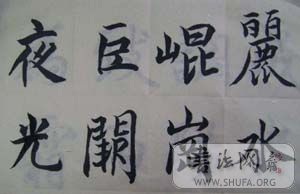 麗水
崐崗
巨闕
夜光
書法网
WWW.SHUFA.ORG